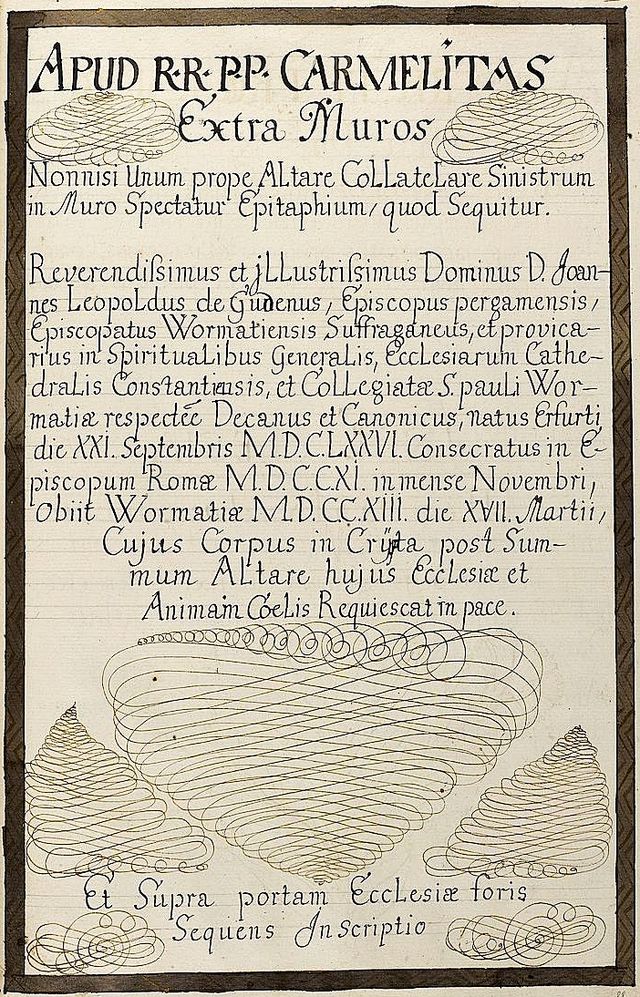 APUD R.R.P.P. CARMELITAS
Extra Muros
Nonnisi Unum prope ALtare CoLLateLare Sinistrum
in Muro Spectatur Epitaphium, quod Sequitur.
Reverendiſsimus et jLLustriſsimus Dominus D. Joan-
nes Leopoldus de Gudenus, Episcopus pergamensis,
Episcopatus Wormatiensis Suffraganeus, et provica-
rius in SpirituaLibus GeneraLis, EccLesiarum Cathe-
draLis Constantiensis, et CoLLegiatæ S. pauLi Wor-
matiæ respectée Decanus et Canonicus, natus Erfurti
die XXI. Septembris M.D.C.LXXVI. Consecratus in E-
piscopum Romæ M.D.C.C.XI. in mense Novembri,
Obiit Wormatiæ M.D.C.C.XIII. die XVII. Martii,
Cujus Corpus in Crÿpta post Sum-
mum ALtare hujus EccLesiæ et
Animam CœLis Requiescat in pace.
Et Supra portam EccLesiæ foris
Sequens Inscriptio